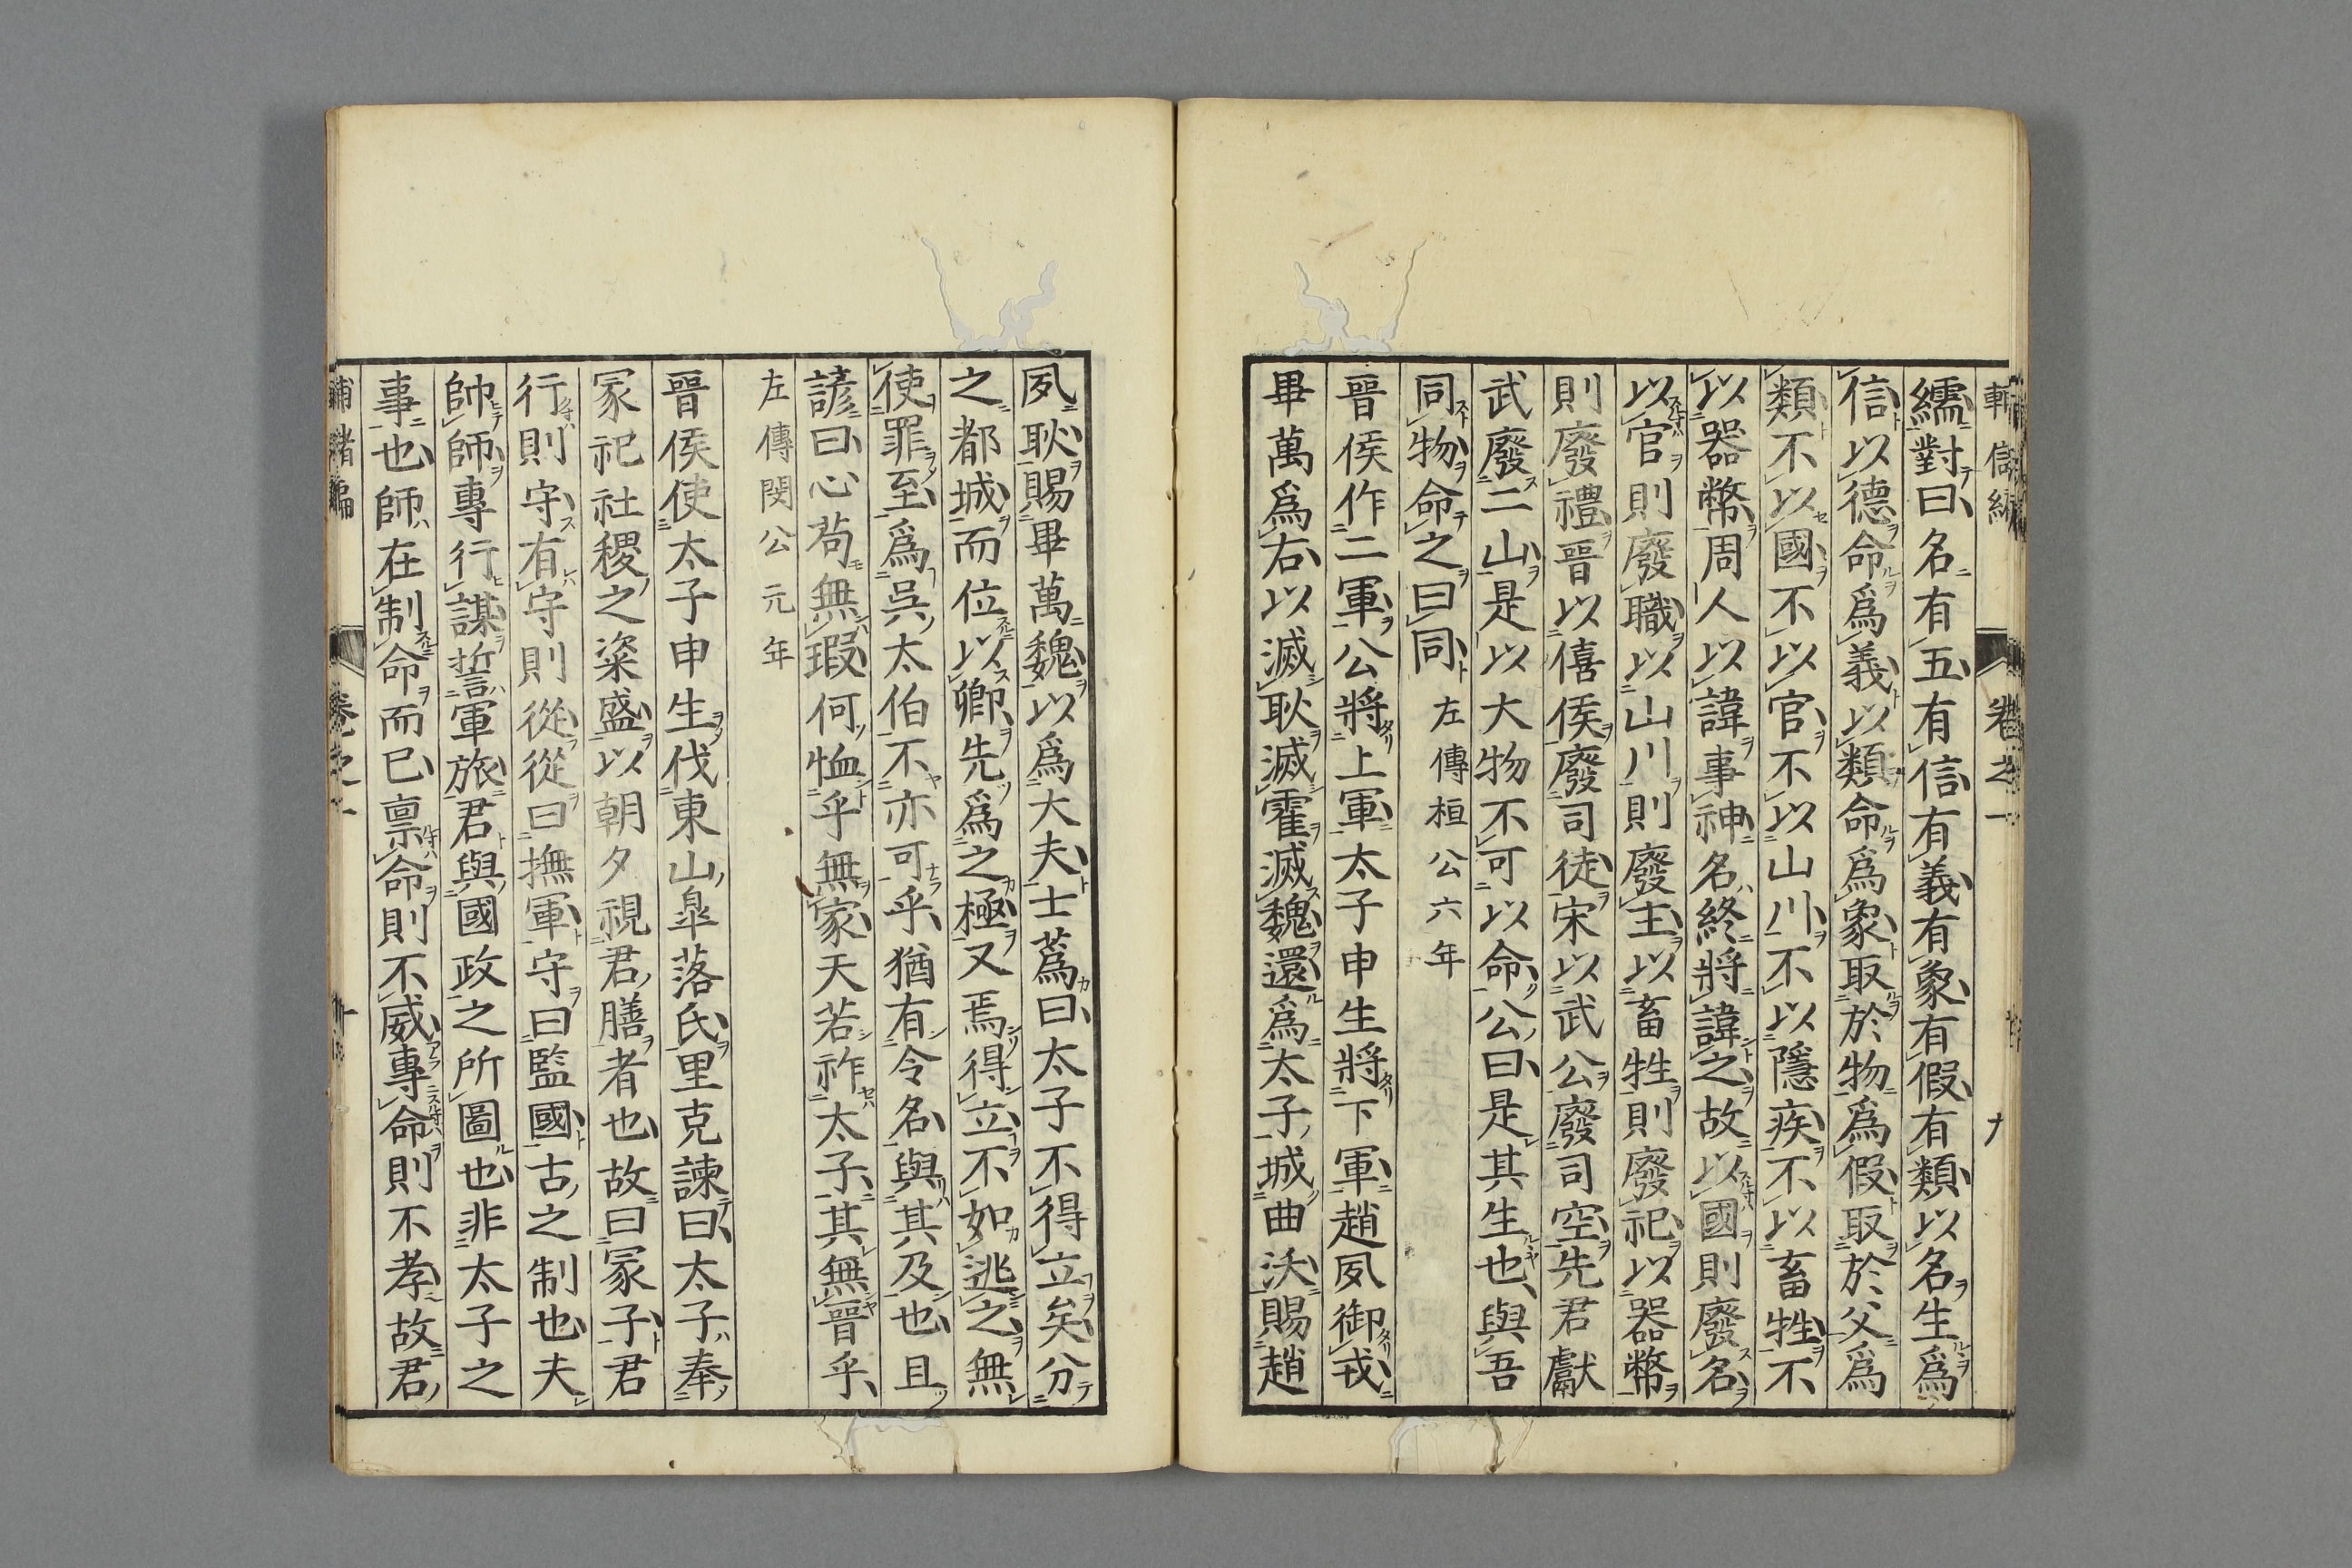 繻對曰名有五有信有義有象有假有類以名生爲
信以德命爲義以類命爲象取於物爲假取於父爲
類不以國不以官不以山川不以隱疾不以畜牲不
以器幣周人以諱事神名終將諱之故以國則廢名
以官則廢職以山川則廢主以畜牲則廢祀以器幣
則廢禮晉以僖侯廢司徒宋以武公廢司空先君獻
武廢二山是以大物不可以命公曰是其生也與吾
同物命之曰同 左傳桓公六年
晉侯作二軍公將上軍太子申生將下軍趙夙御戎
畢萬爲右以滅耿滅霍滅魏還爲太子城曲沃賜趙
夙耿賜畢萬魏以爲大夫士蒍曰太子不得立矣分
之都城而位以卿先爲之極又焉得立不如逃之無
使罪至爲吳太伯不亦可乎猶有令名與其及也且
諺曰心苟無瑕何恤乎無家天若祚太子其無晉乎
左傳閔公元年
晉侯使太子申生伐東山皐落氏里克諫曰太子奉
冢祀社稷之粢盛以朝夕視君膳者也故曰冢子君
行則守有守則從從曰撫軍守曰監國古之制也夫
帥師專行謀誓軍旅君與國政之所圖也非太子之
事也師在制命而已禀命則不威專命則不孝故君
卷之一